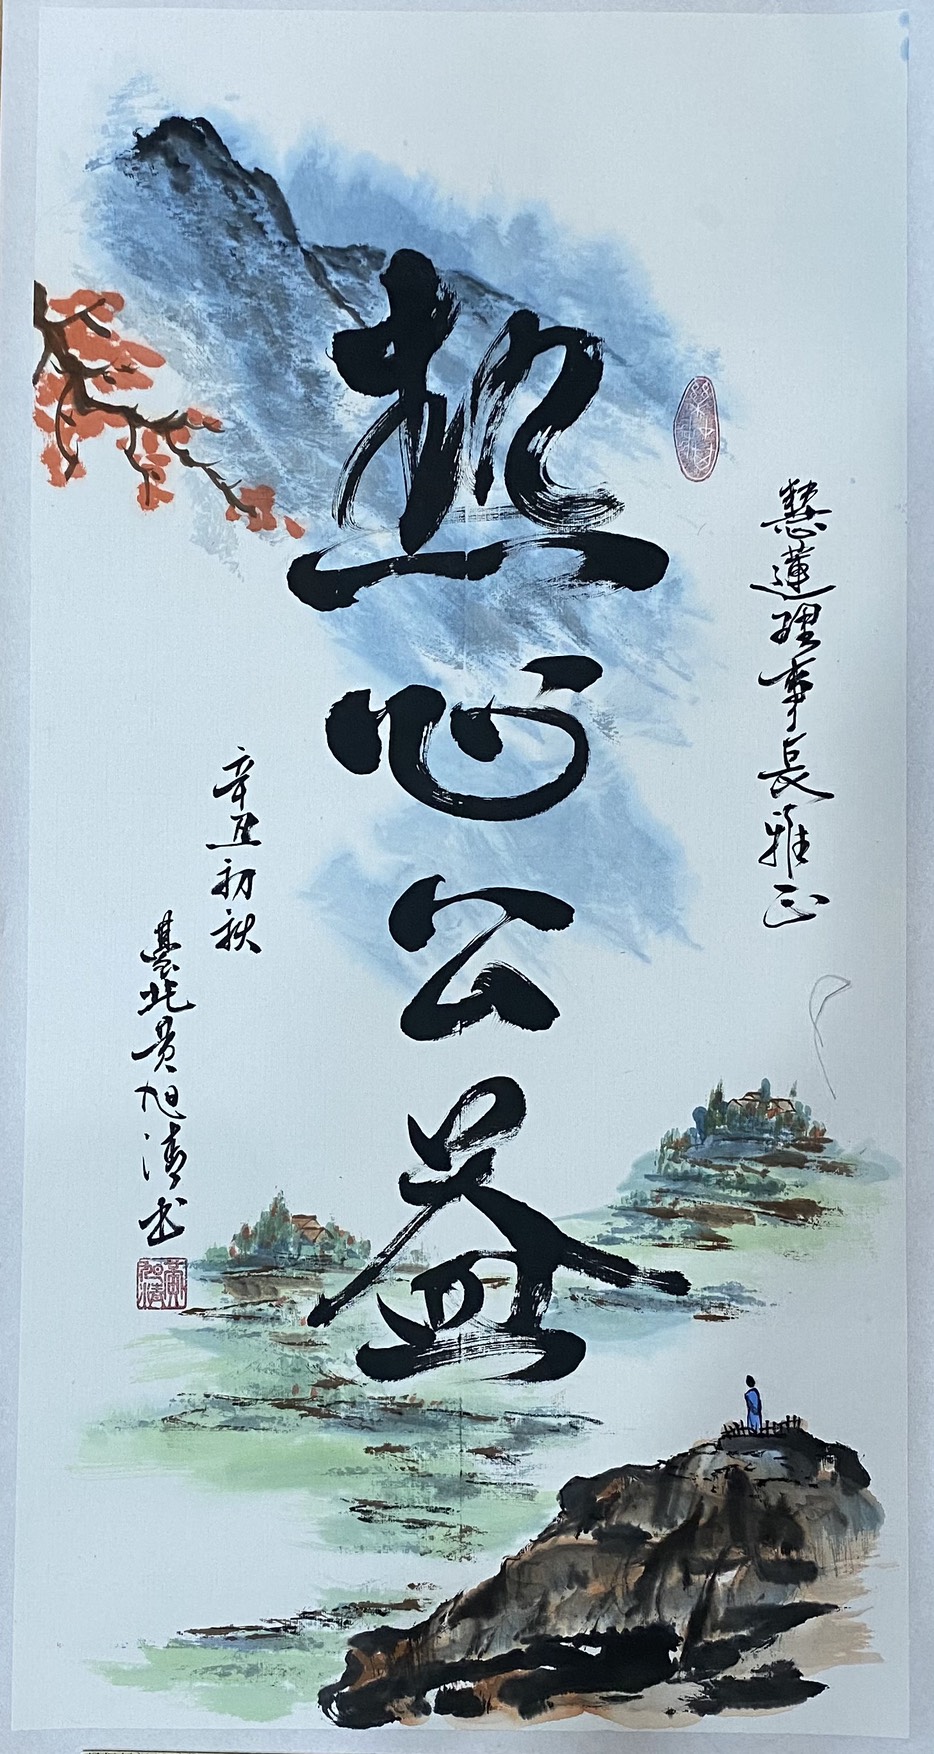 慧蓮理事長雅正
熱心公益
辛丑初秋
臺北黃旭清書
黃旭清